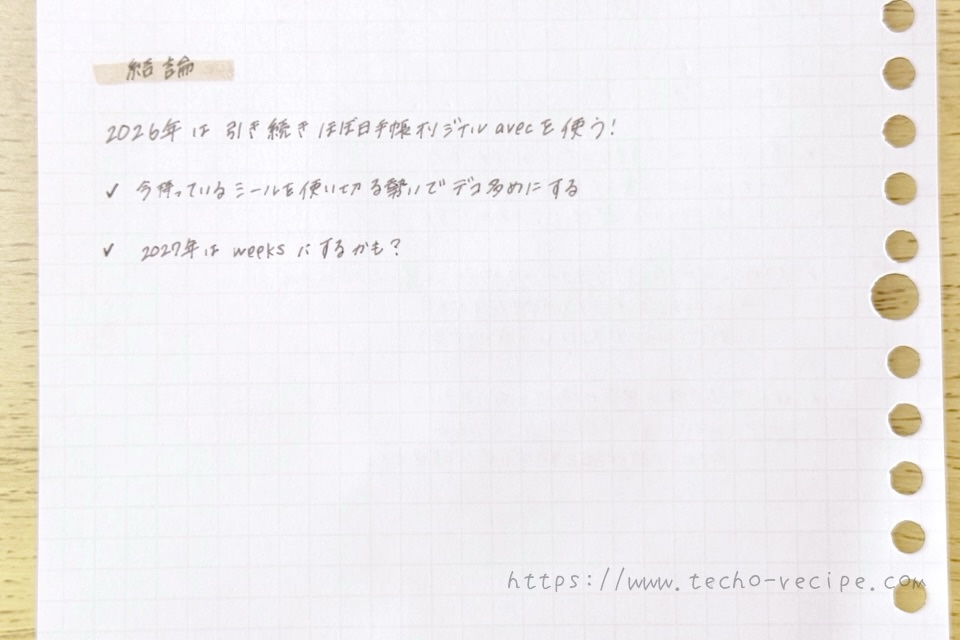 結論
2026年は引き続きほぼ日手帳オリジナルavecを使う!
✓ 今持っているシールを使い切る勢いでデコ多めにする
✓ 2027年はweeksにするかも?
https://www.techo-recipe.com